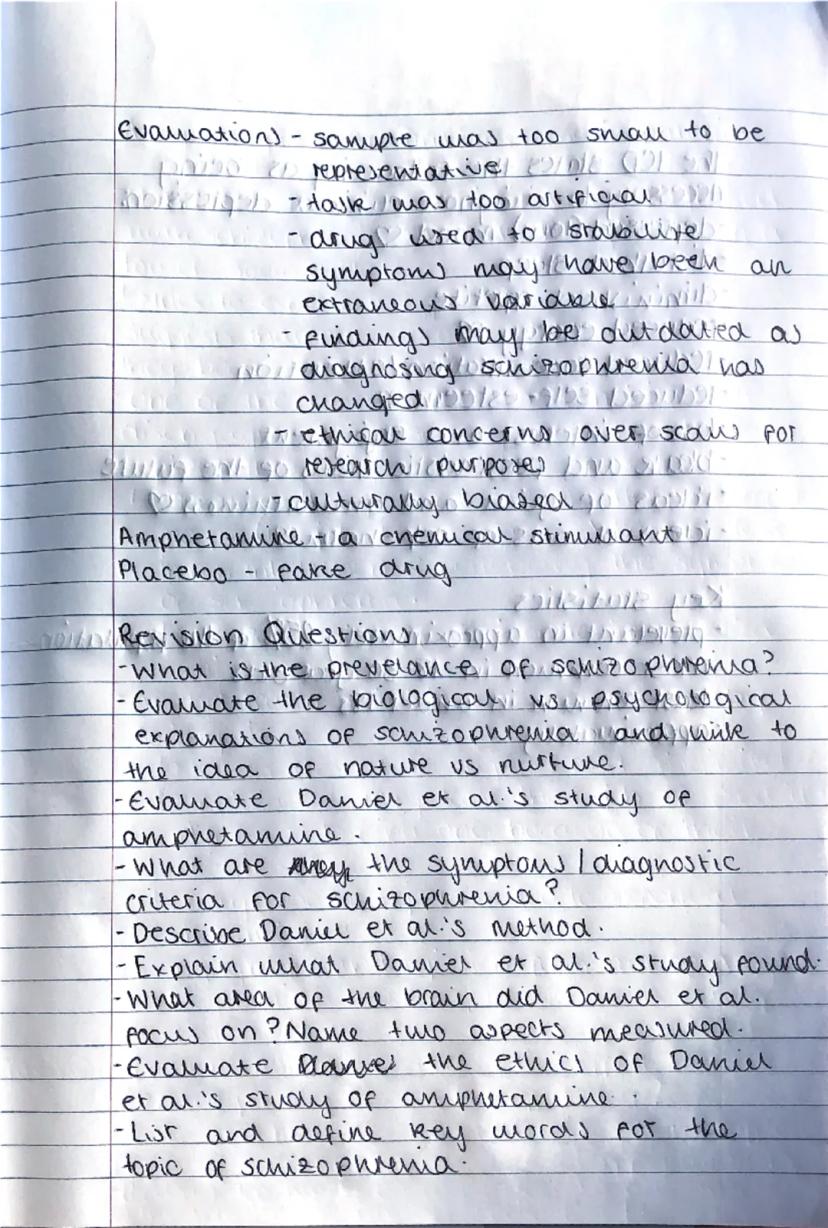 Evaluations - sample was too small to be
representative
- task was too artificial
- drugs used to stabilise
symptoms may have been an
extraneous variable
- findings may be outdated as
diagnosing schizophrenia has
changed
- ethical concerns over scans for
research purposes
- culturally biased
Amphetamine - a chemical stimulant
Placebo - fake drug
Revision Questions
- What is the prevelance of schizophrenia?
- Evaluate the biological vs psychological
explanations of schizophrenia and link to
the idea of nature vs nurture.
- Evaluate Daniel et al.'s study of
amphetamine.
- What are the symptoms / diagnostic
criteria for schizophrenia?
- Describe Daniel et al.'s method.
- Explain what Daniel et al.'s study found.
- What area of the brain did Daniel et al.
focus on? Name two aspects measured.
- Evaluate the ethics of Daniel
et al.'s study of amphetamine.
- List and define key words for the
topic of schizophrenia.